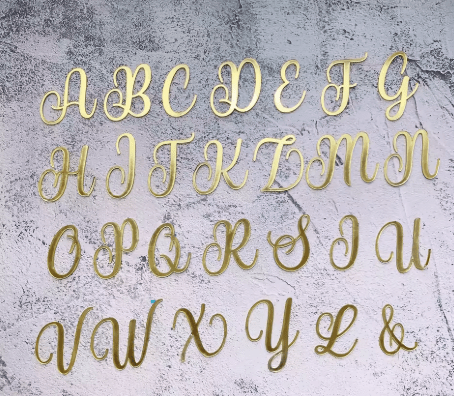 A B C D E F G
H J T K Z M N
O P Q R S I U
V W X Y L &